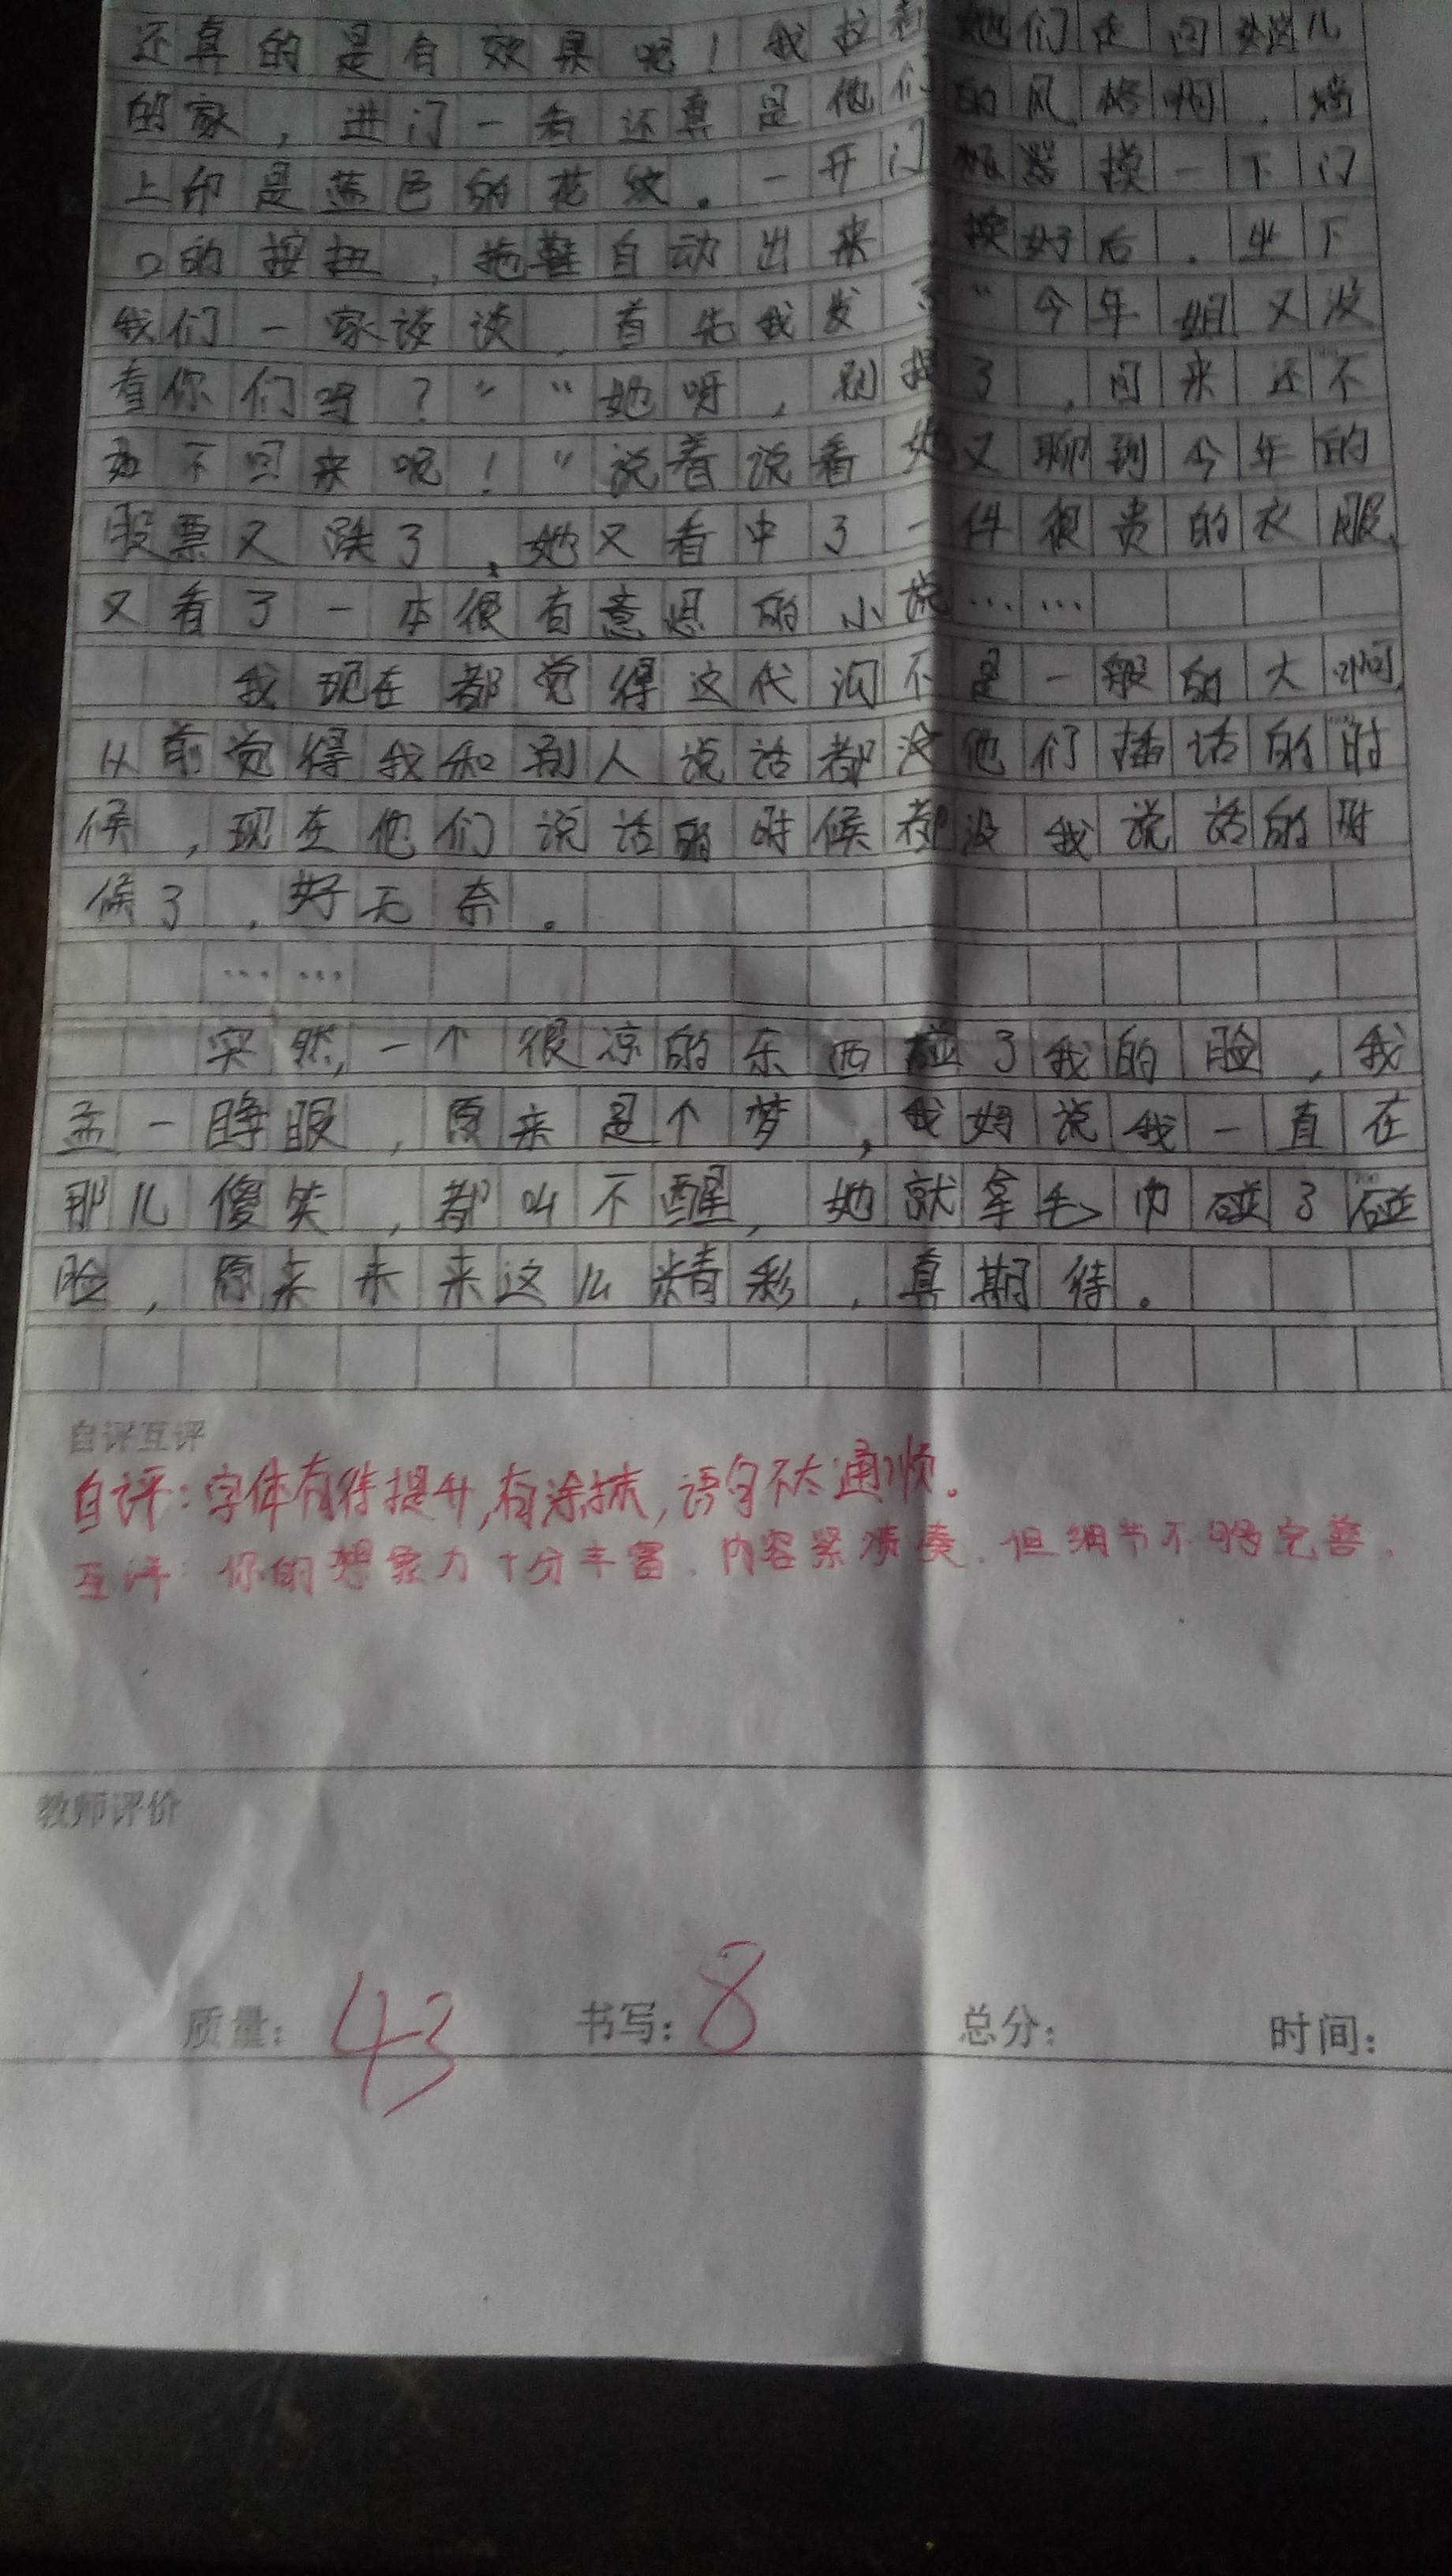 还真的是有效果呢！我拉着她们走回
的家，进门一看还真是他们的风格啊，墙
上印是蓝色的花纹。一开门 摸一下门
口的按扭，拖鞋自动出来，换好后，坐下
我们一家谈谈，首先我发言“今年 又没
看你们吗？”“她呀，别提了，回来还不
如不回来呢！”说着说着她又聊到今年的
股票又跌了，她又看中了一件很贵的衣服，
又看了一本很有意思的小说……
我现在都觉得这代沟不是一般的大啊，
从前觉得我和别人说话都没他们插话的时
候，现在他们说话的时候都没我说话的时
候了，好无奈。
……
突然，一个很凉的东西碰了我的脸，我
孟一睁眼，原来是个梦，我妈说我一直在
那儿傻笑，都叫不醒，她就拿毛巾碰了碰
脸，原来未来这么精彩，真期待。
自评互评
自评：字体有待提升，有涂抹，语句不太通顺。
互评：你的想象力十分丰富，内容紧凑，但细节不够完善。
教师评价
质量：43 书写：8 总分： 时间：